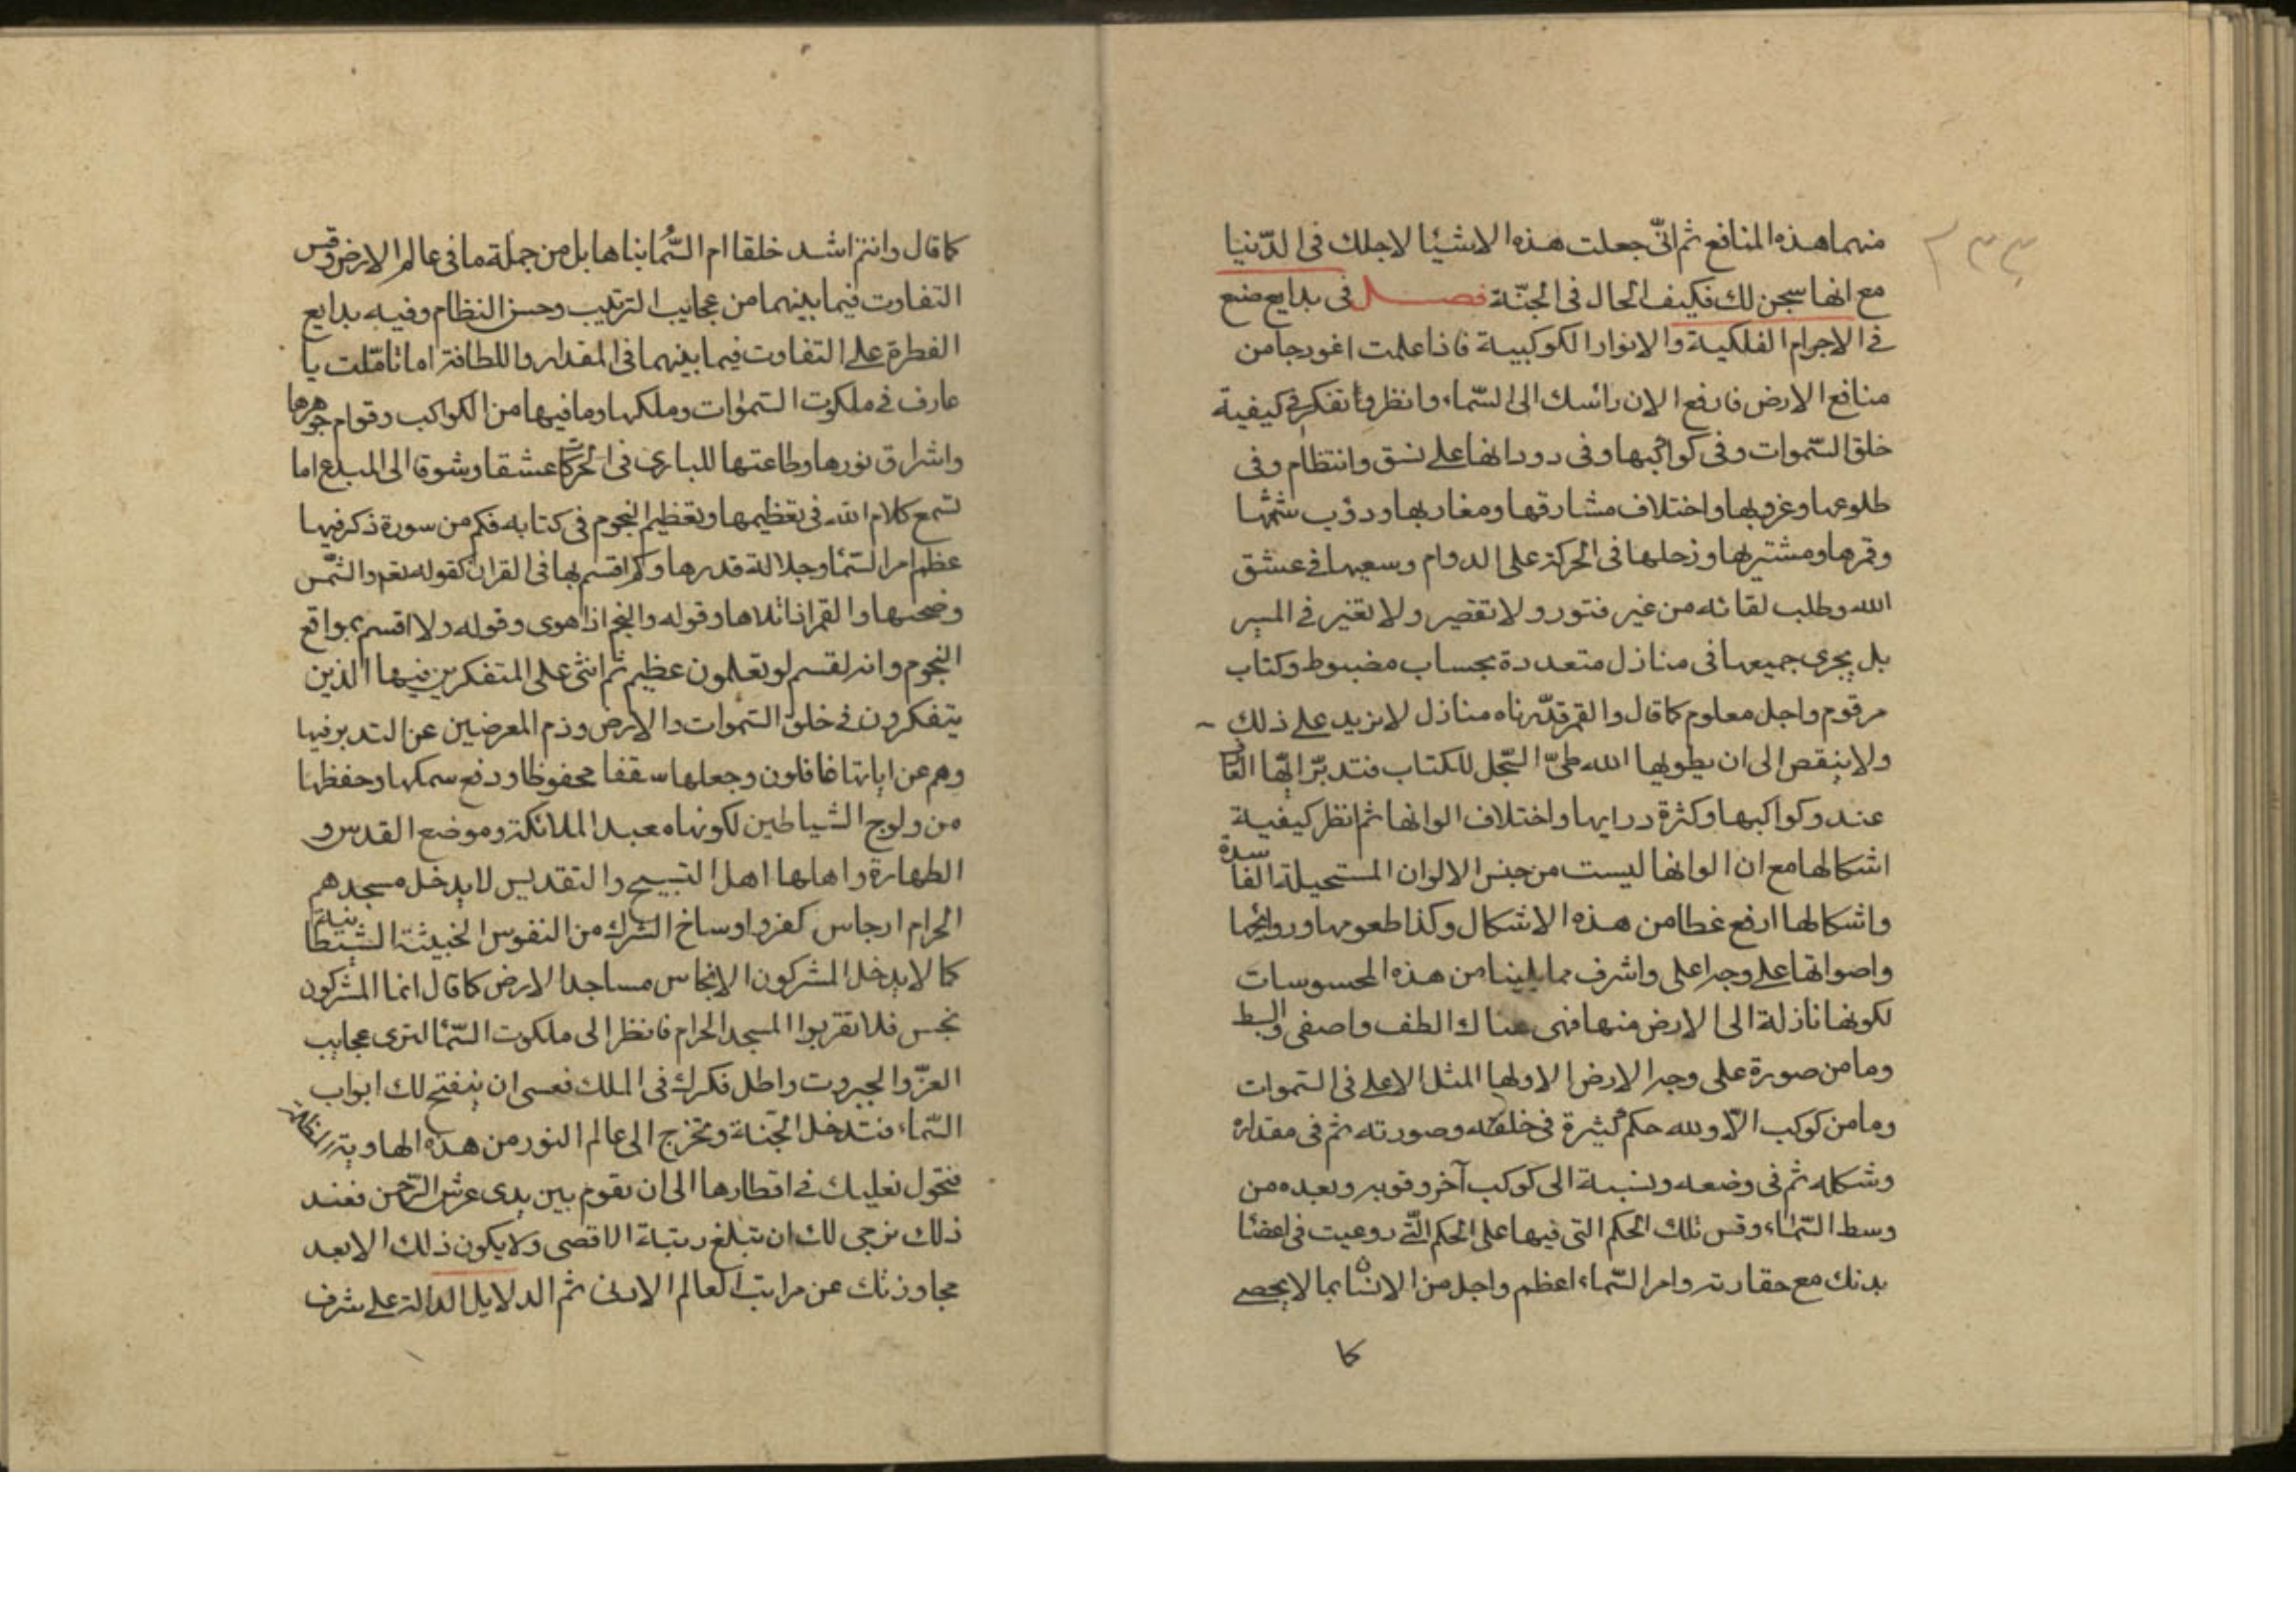 منهما هذه المنافع ثم انّى جعلت هذه الاشيئا لاجلك فى الدّنيا
مع انها سجن لك فكيف الحال فى الجنّة فصل فى بدايع صنع
فى الاجرام الفلكية والانوار الكوكبية فاذا علمت انموذجا من
منافع الارض فارفع الان راسك الى السّماء وانظر وتفكر فى كيفية
خلق السّموات وفى كواكبها وفى دورانها على نسق وانتظام وفى
طلوعها وغروبها واختلاف مشارقها ومغاربها ودؤب شمسها
وقمرها ومشتريها وزحلها فى الحركة على الدوام وسعيها فى عشق
الله وطلب لقائه من غير فتور ولا تقصير ولا تغير فى المسير
بل يجرى جميعها فى منازل متعددة بحساب مضبوط وكتاب
مرقوم واجل معلوم كما قال والقمر قدّرناه منازل لا يزيد على ذلك
ولا ينقص الى ان يطويها الله طىّ السّجل للكتاب فتدبّر ايّها العا
عدد كواكبها وكثرة دراريها واختلاف الوانها ثم انظر كيفية
اشكالها مع ان الوانها ليست من جنس الالوان المستحيلة الفاسدة
واشكالها ارفع غطا من هذه الاشكال وكذا طعومها وروايحها
واصواتها على وجه اعلى واشرف مما يلينا من هذه المحسوسات
لكونها نازلة الى الارض منها فهى هناك الطف واصفى وابسط
وما من صورة على وجه الارض الا ولها المثل الاعلى فى السّموات
وما من كوكب الّا ولله حكم كثيرة فى خلقه وصورته ثم فى مقداره
وشكله ثم فى وضعه ونسبة الى كوكب آخر وقربه وبعده من
وسط السّماء وقس تلك الحكم التى فيها على الحكم الّتى روعيت فى اعضا
بدنك مع حقارته وامر السّماء اعظم واجل من الانسان بما لا يحصى
كا
كما قال وانتم اشد خلقا ام السّماء بناها بل من جملة ما فى عالم الارض وقس
التفاوت فيما بينهما من عجايب الترتيب وحسن النظام وفيه بدايع
الفطرة على التفاوت فيما بينهما فى المقدار واللطافة اما تامّلت يا
عارف فى ملكوت السّموات وملكها وما فيها من الكواكب وقوام جوهرها
واشراق نورها وطاعتها للبارى فى الحركات عشقا وشوقا الى المبدع اما
تسمع كلام الله فى تعظيمها وتعظيم النجوم فى كتابه فكم من سورة ذكر فيها
عظم امر السّما وجلالة قدرها وكم اقسم بها فى القران كقوله تعم والشّمس
وضحيها والقمر اذا تلاها وقوله والنجم اذا هوى وقوله ولا اقسم بمواقع
النجوم وانه لقسم لو تعلمون عظيم ثم اثنى على المتفكرين فيها الذين
يتفكرون فى خلق السّموات والارض وذم المعرضين عن التدبر فيها
وهم عن اياتها غافلون وجعلها سقفا محفوظا ورفع سمكها وحفظها
من ولوج الشياطين لكونها معبد الملائكة وموضع القدس و
الطهارة واهلها اهل التسبيح والتقديس لا يدخل مسجدهم
الحرام ارجاس كفر واوساخ الشرك من النفوس الخبيثة الشيطانية
كما لا يدخل المشركون الانجاس مساجد الارض كما قال انما المشركون
نجس فلا تقربوا المسجد الحرام فانظر الى ملكوت السّما لترى عجايب
العزّ والجبروت واطل فكرك فى الملك فعسى ان ينفتح لك ابواب
السّماء فتدخل الجّنة وتخرج الى عالم النور من هذه الهاوية
فتحول نعليك فى اقطارها الى ان تقوم بين يدى عرش الرّحمن فعند
ذلك نرجى لك ان تبلغ رتبة الاقصى ولا يكون ذلك الا بعد
مجاوزتك عن مراتب العالم الادنى ثم الدلايل الدالة على شرف